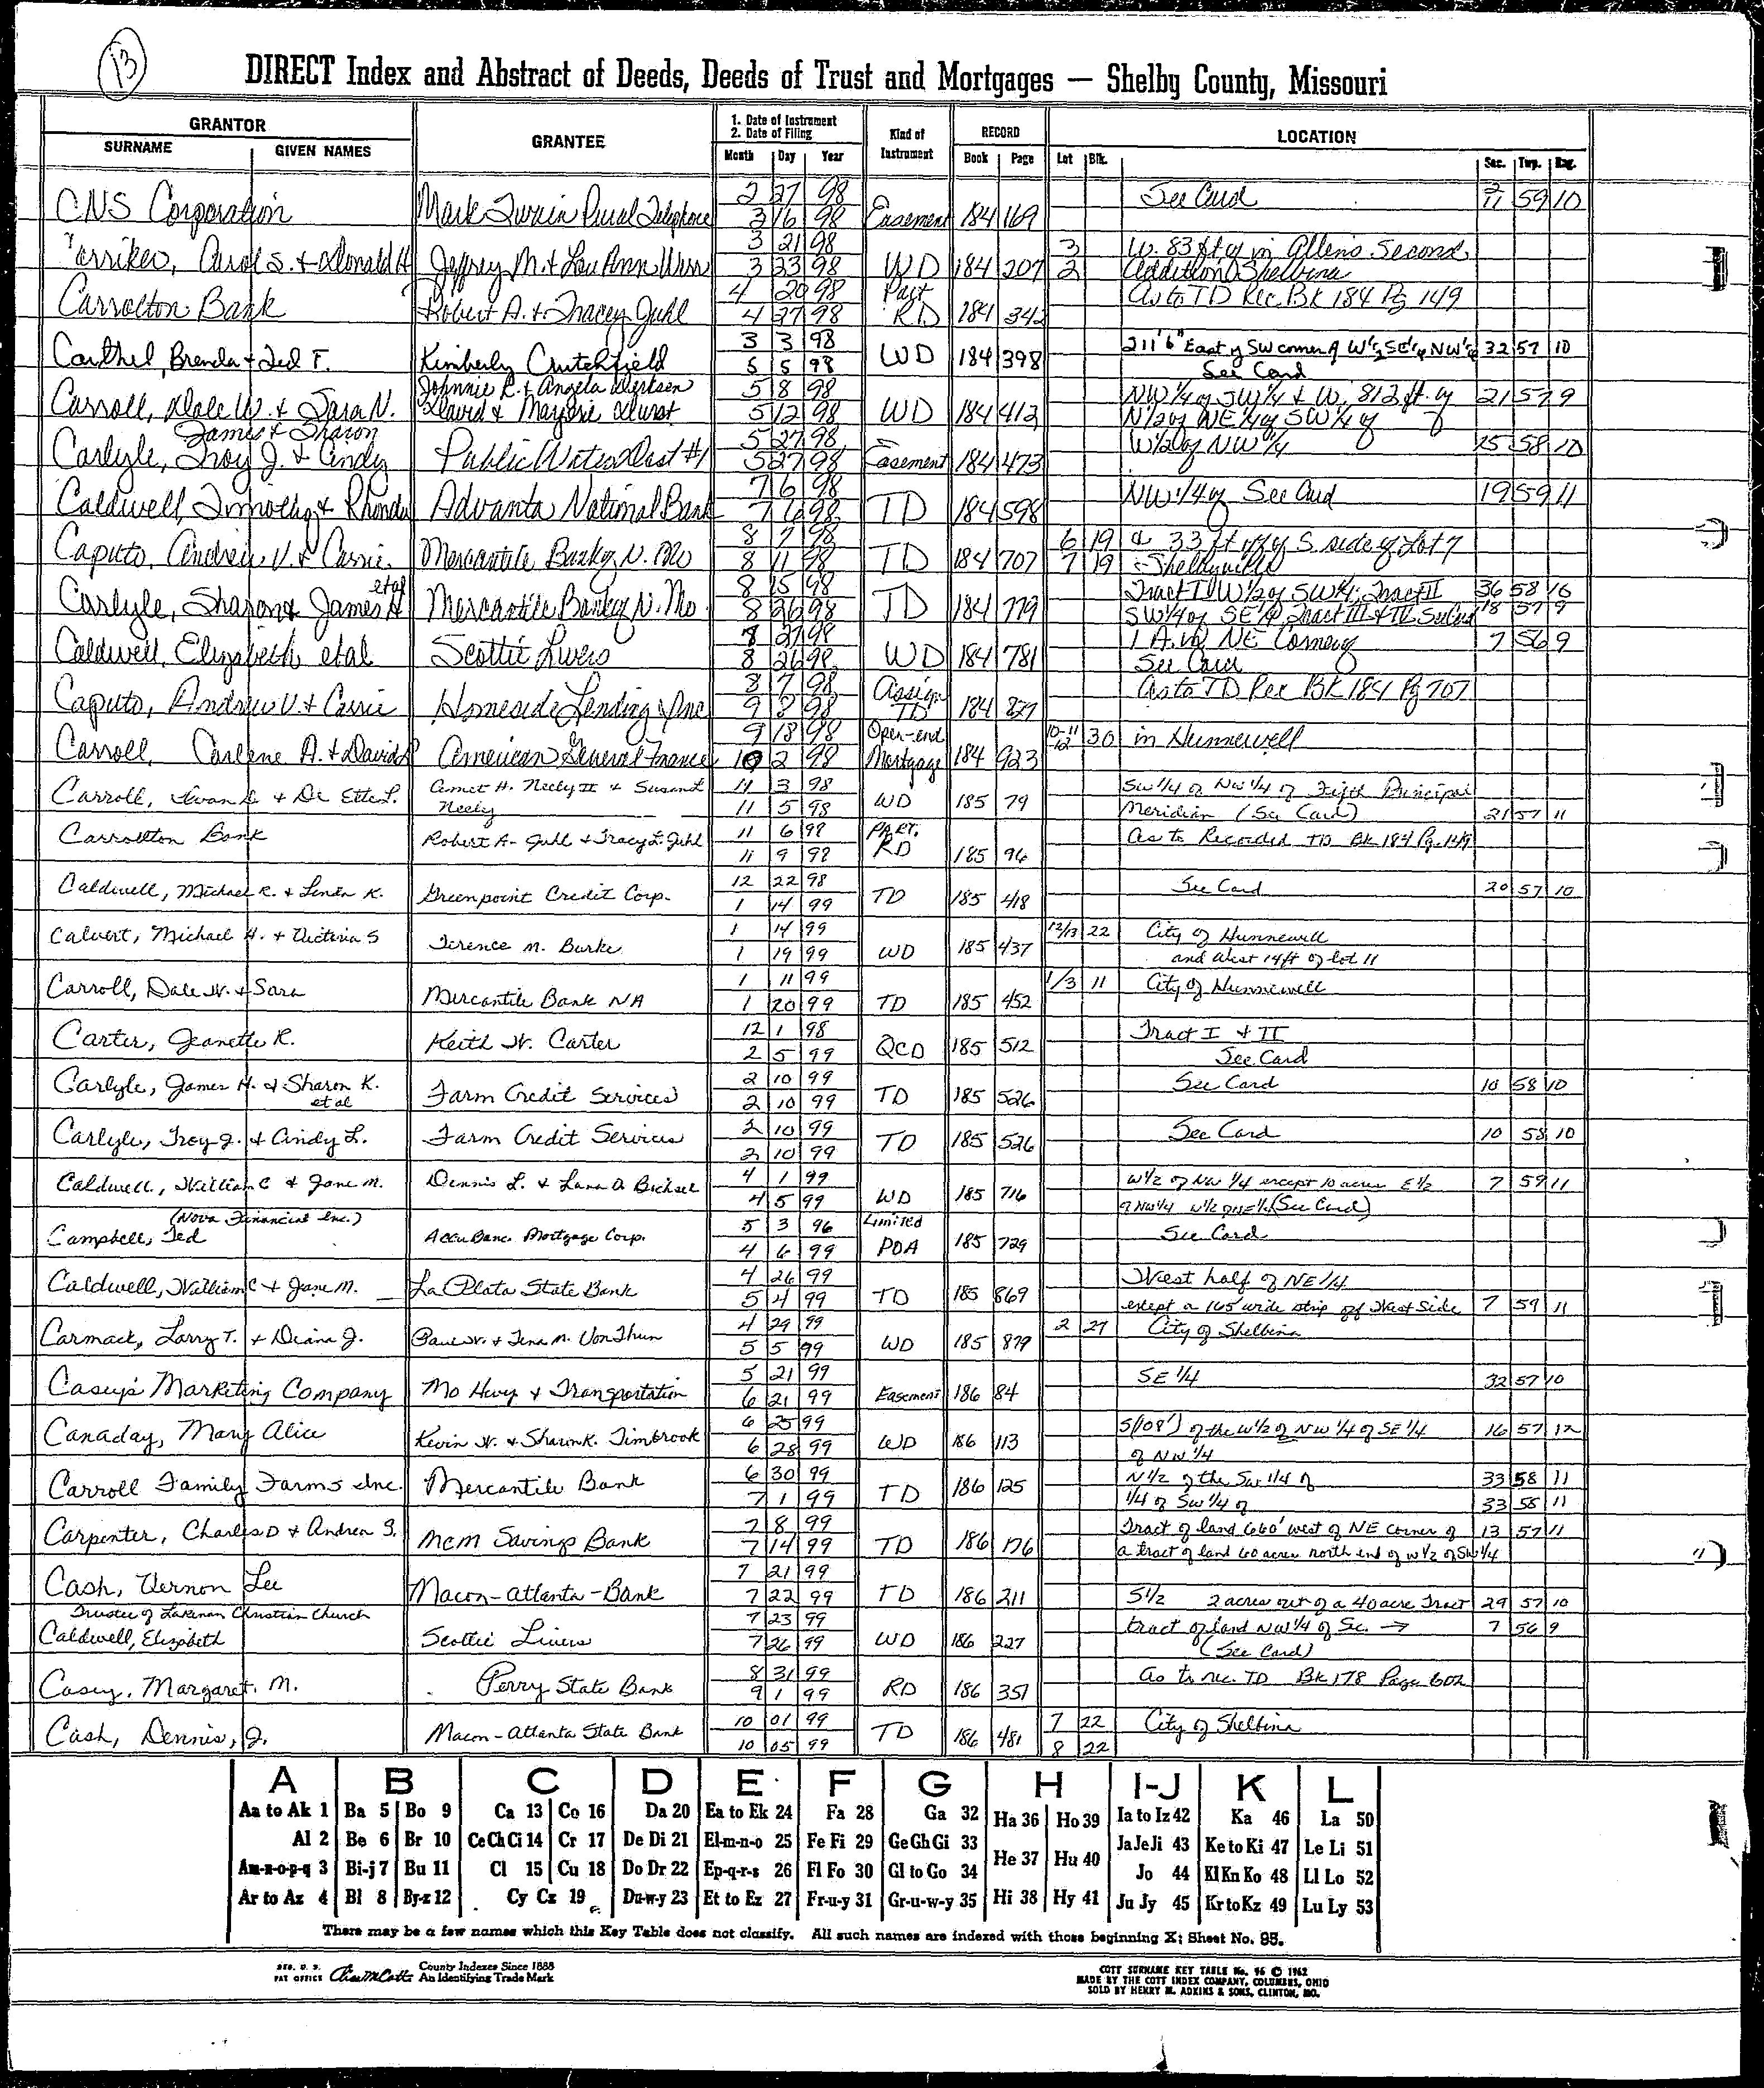 13
DIRECT Index and Abstract of Deeds, Deeds of Trust and Mortgages — Shelby County, Missouri
GRANTOR GRANTEE 1. Date of Instrument 2. Date of Filing Kind of Instrument RECORD LOCATION
SURNAME GIVEN NAMES Month Day Year Book Page Lot Blk. Sec. Twp. Rng.
CNS Corporation Mark Twain Rural Telephone 2 27 98 See Card 59 10
3 16 98 Easement 184 169
Carol S. & Donald H Jeffrey M. & Lou Ann 3 21 98 3 W. 83 ft of in Allens Second
3 23 98 WD 184 207 2 Addition Shelbina
Carrolton Bank Robert A. & Tracey Juhl 4 20 98 Part As to TD Rec Bk 184 Pg 149
4 27 98 RD 184 342
Carthel, Brenda & Ted F. Kimberly Crutchfield 3 3 98 WD 184 398 211'6" East of SW corner of W½ SE¼ NW¼ 32 57 10
5 5 98 See Card
Carroll, Dale W. & Sara N. Johnnie R. & Angela Derksen 5 8 98 NW 1/4 of SW 1/4 & W. 812 ft. of 21 57 9
David & Marjorie Durst 5 12 98 WD 184 412 N 1/2 of NE 1/4 of SW 1/4 of
James & Sharon 5 27 98 W 1/2 of NW 1/4 25 58 10
Carlyle, Troy J. & Cindy Public Water Dist #1 5 27 98 Easement 184 473
Caldwell, Timothy & Rhonda Advanta National Bank 7 6 98 NW 1/4 of See Card 19 59 11
7 98 TD 184 598
Caputo, Andrew V. & Carrie Mercantile Bank of N. Mo 8 7 98 6 19 & 33 ft off of S. side of Lot 7
8 11 98 TD 184 707 7 19 Shelbyville
Carlyle, Sharon & James H etal Mercantile Bank of N. Mo 8 15 98 Tract I W 1/2 of SW 1/4, Tract II 36 58
8 26 98 TD 184 779 SW 1/4 of SE 1/4, Tract III & IV See Card 18 57 9
Caldwell, Elizabeth etal Scottie Livers 8 27 98 1 A. in NE Corner of 7 56 9
8 26 98 WD 184 781 See Card
Caputo, Andrew V. & Carrie Homeside Lending Inc 8 7 98 Assign As to TD Rec Bk 184 Pg 707
9 98 TD 184
Carroll, Carlene A. & David American General Finance 9 18 98 Open-end 10-11 12 30 in Hunnewell
10 2 98 Mortgage 184 923
Carroll, Ivan D. & De Etta L. H. Neely II & Susan L 11 3 98 SW 1/4 of NW 1/4 of Fifth Principal
Neely 11 5 98 WD 185 79 Meridian (See Card) 21 57 11
Carrollton Bank Robert A. Juhl & Tracy L. Juhl 11 6 98 PART. As to Recorded TD Bk 184 Pg. 149
11 9 98 RD 185 96
Caldwell, Michael R. & Linda K. Greenpoint Credit Corp. 12 22 98 See Card 20 57 10
1 14 99 TD 185 418
Calvert, Michael H. & Victoria S Terence M. Burke 1 14 99 12/13 22 City of Hunnewell
1 19 99 WD 185 437 and West 14ft of lot 11
Carroll, Dale W. & Sara Mercantile Bank NA 1 11 99 1/3 11 City of Hunnewell
1 20 99 TD 185 452
Carter, Jeanette R. Keith W. Carter 12 1 98 Tract I & II
2 5 99 QCD 185 512 See Card
Carlyle, James H. & Sharon K. et al Farm Credit Services 2 10 99 See Card 10 58 10
2 10 99 TD 185 526
Carlyle, Troy J. & Cindy L. Farm Credit Services 2 10 99 See Card 10 58 10
2 10 99 TD 185 526
Caldwell, William C & Jane M. Dennis L. & Lana D. Bichsel 4 1 99 W 1/2 of NW 1/4 except 10 acres E 1/2 7 59 11
4 5 99 WD 185 716 of NW 1/4 W 1/2 of NE 1/4 (See Card)
(Nova Financial Inc.) 5 3 96 Limited See Card
Campbell, Ted Accu Banc Mortgage Corp. 4 6 99 POA 185 729
Caldwell, William C & Jane M. La Plata State Bank 4 26 99 West half of NE 1/4
5 4 99 TD 185 869 except a 165' wide strip off West Side 7 59 11
Carmack, Larry T. & Diana J. Paul W. & Tena M. VonThun 4 29 99 2 27 City of Shelbina
5 5 99 WD 185 879
Casey's Marketing Company Mo Hwy & Transportation 5 21 99 SE 1/4 32 57 10
6 21 99 Easement 186 84
Canaday, Mary Alice Kevin W. & Sharon K. Timbrook 6 25 99 S(108') of the W 1/2 of NW 1/4 of SE 1/4 16 57 12
6 28 99 WD 186 113 of NW 1/4
Carroll Family Farms Inc. Mercantile Bank 6 30 99 N 1/2 of the SW 1/4 of 33 58 11
7 1 99 TD 186 125 1/4 of SW 1/4 of 33 58 11
Carpenter, Charles D & Andrea S. MCM Savings Bank 7 8 99 Tract of land 660' west of NE corner of 13 57 11
7 14 99 TD 186 176 a tract of land 60 acres north end of W 1/2 of SW 1/4
Cash, Vernon Lee Macon-Atlanta-Bank 7 21 99
7 22 99 TD 186 211 S 1/2 2 acres out of a 40 acre Tract 29 57 10
Trustee of Lakenan Christian Church 7 23 99 tract of land NW 1/4 of Sec. → 7 56 9
Caldwell, Elizabeth Scottie Livers 7 26 99 WD 186 227 (See Card)
Casey, Margaret. M. Perry State Bank 8 31 99 As to rec. TD Bk 178 Page 602
9 1 99 RD 186 351
Cash, Dennis, J. Macon-Atlanta State Bank 10 01 99 7 22 City of Shelbina
10 05 99 TD 186 481 8 22
A B C D E F G H I-J K L
Aa to Ak 1 Ba 5 Bo 9 Ca 13 Co 16 Da 20 Ea to Ek 24 Fa 28 Ga 32 Ha 36 Ho 39 Ia to Iz 42 Ka 46 La 50
Al 2 Be 6 Br 10 Ce Ch Ci 14 Cr 17 De Di 21 El-m-n-o 25 Fe Fi 29 Ge Gh Gi 33 He 37 Hu 40 Ja Je Ji 43 Ke to Ki 47 Le Li 51
Am-n-o-p-q 3 Bi-j 7 Bu 11 Cl 15 Cu 18 Do Dr 22 Ep-q-r-s 26 Fl Fo 30 Gl to Go 34 Jo 44 Kl Kn Ko 48 Ll Lo 52
Ar to Az 4 Bl 8 By-z 12 Cy Cz 19 Du-w-y 23 Et to Ez 27 Fr-u-y 31 Gr-u-w-y 35 Hi 38 Hy 41 Ju Jy 45 Kr to Kz 49 Lu Ly 53
There may be a few names which this Key Table does not classify. All such names are indexed with those beginning X; Sheet No. 95.
REG. U. S. PAT OFFICE County Indexes Since 1888 An Identifying Trade Mark
COTT SURNAME KEY TABLE No. 96 © 1962
MADE BY THE COTT INDEX COMPANY, COLUMBUS, OHIO
SOLD BY HENRY M. ADKINS & SONS, CLINTON, MO.